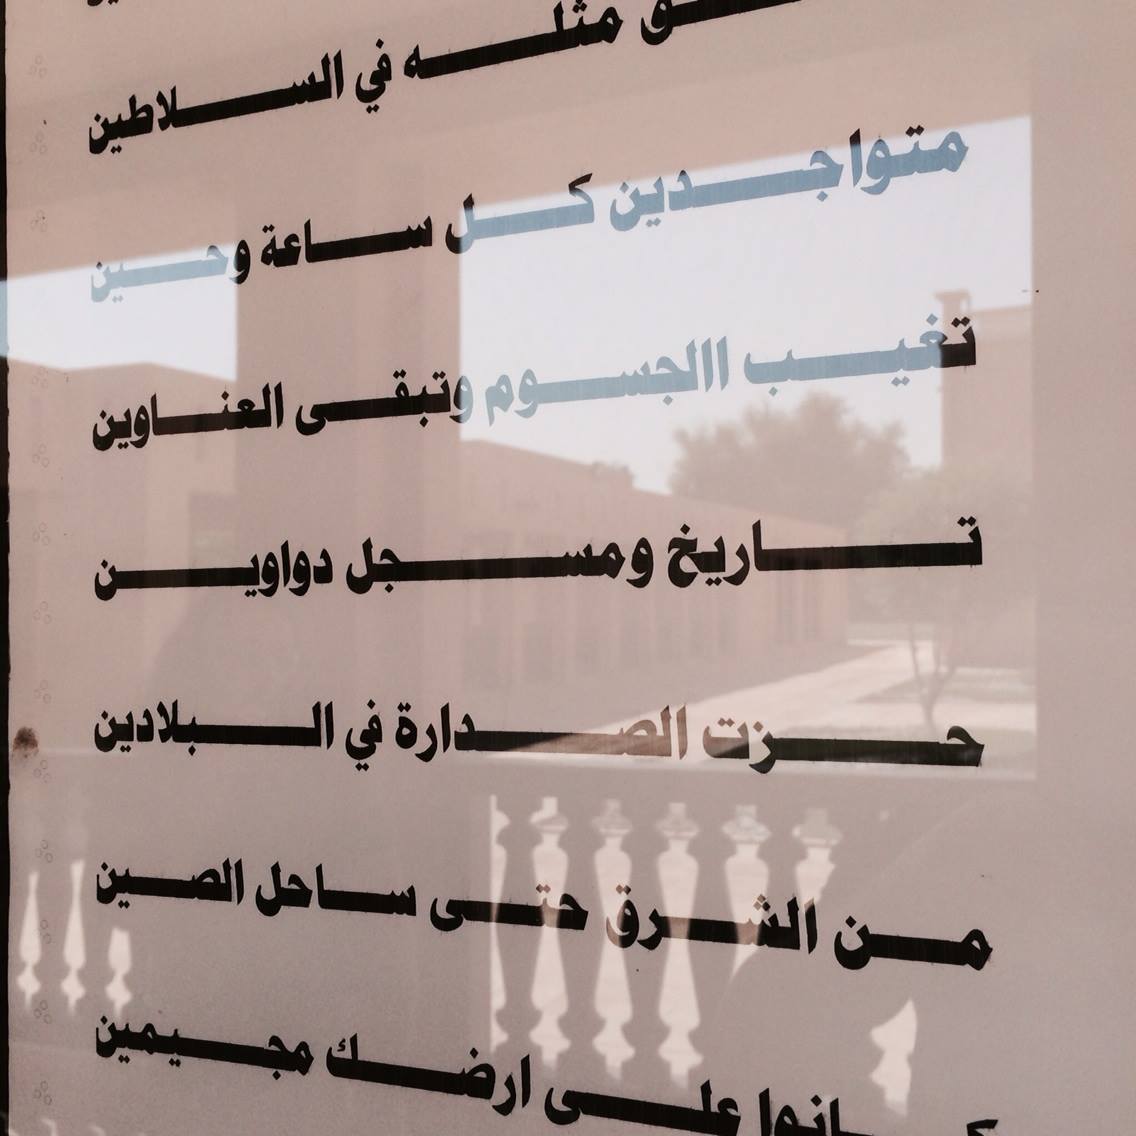 مثله في السلاطين
متواجدين كل ساعة وحين
تغيب االجسوم وتبقى العناوين
تاريخ ومسجل دواوين
حزت الصدارة في البلادين
من الشرق حتى ساحل الصين
كانوا على ارضك مجيمين